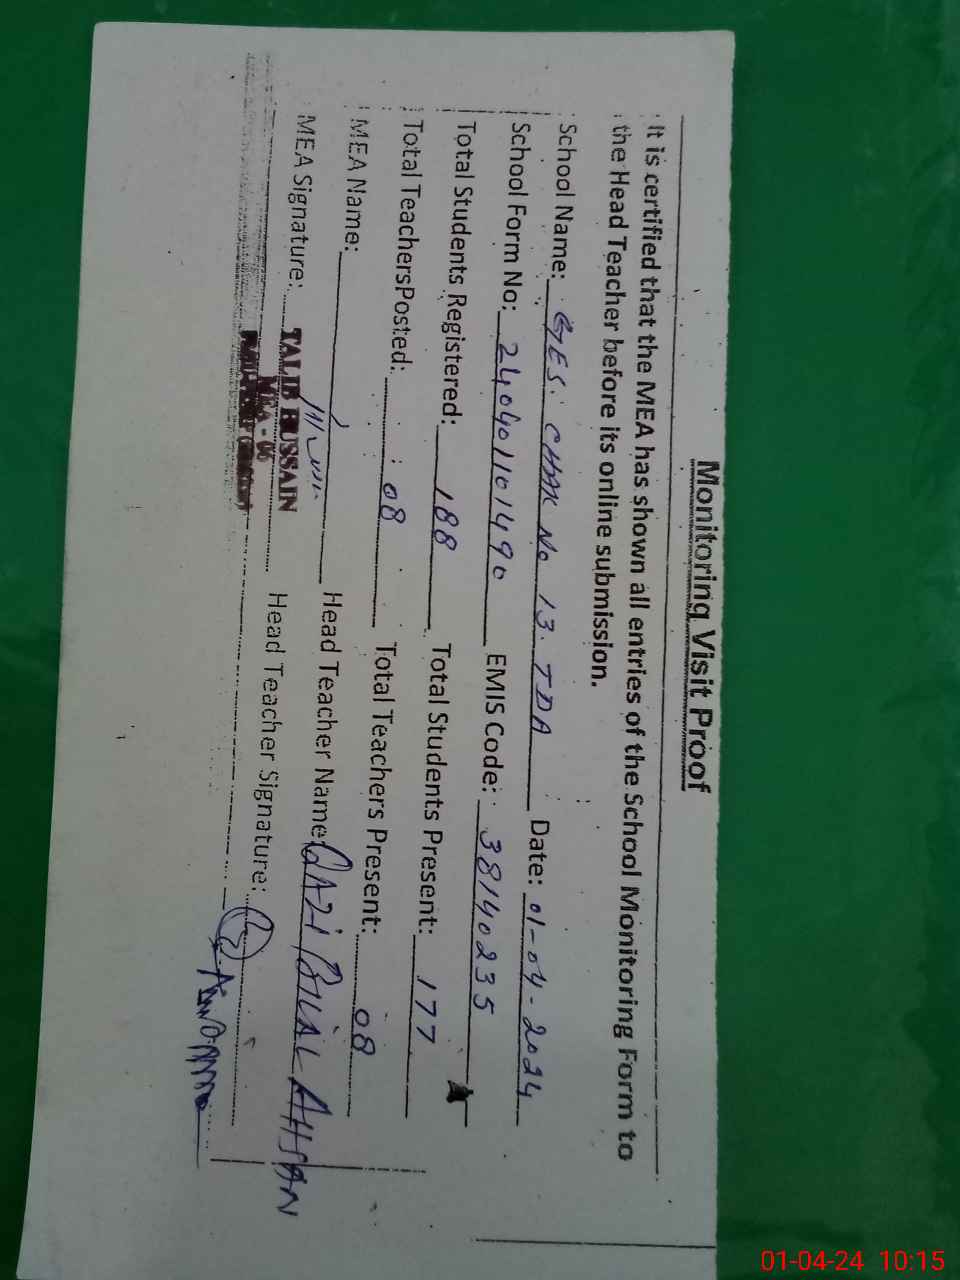 Monitoring Visit Proof
It is certified that the MEA has shown all entries of the School Monitoring Form to
the Head Teacher before its online submission.
School Name: GES. CHAK No 13. TDA Date: 01-04-2024
School Form No: 240401101490 EMIS Code: 38140235
Total Students Registered: 188 Total Students Present: 177
Total TeachersPosted: 08 Total Teachers Present: 08
MEA Name: Head Teacher Name: QAZI BILAL AHSAN
MEA Signature: Head Teacher Signature:
TALIB HUSSAIN
MEA - 06
01-04-24 10:15